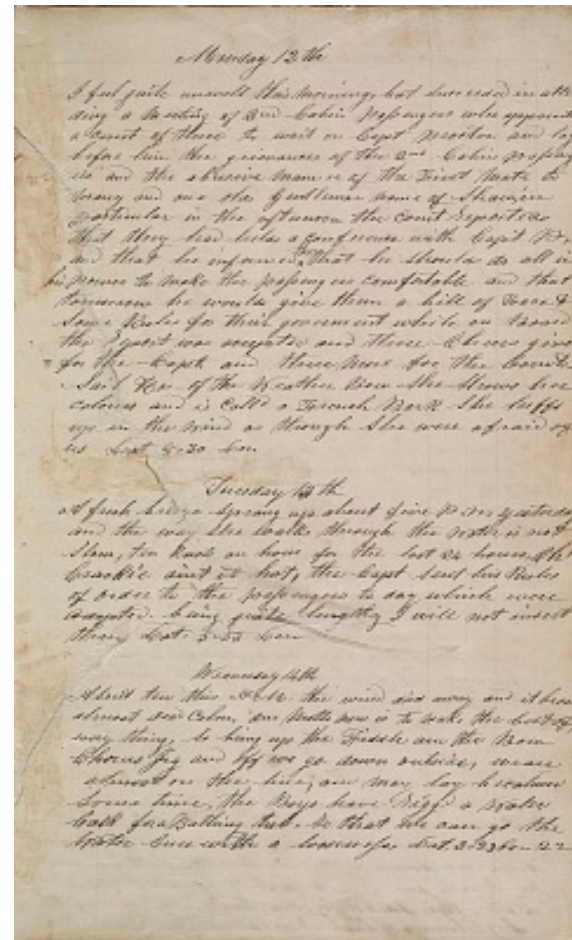 Monday 12th
I feel quite unwell this morning, but succeeded in atten
ding a Meeting of 2nd Cabin passengers who appointed
a comt of three to wait on Capt and lay
before him the grievances of the 2nd Cabin passeng
ers and the abusive manner of the First Mate to
many and one old Gentleman name of in
particular in the afternoon the comt reported
that they had held a conference with Capt P.
and that he informed that he should do all in
his power to make the passengers comfortable and that
tomorrow he would give them a bill of Fare &
some Rules for their government while on board
the report was accepted and three Cheers given
for the Capt and three more for the comt
Sail Ho. off the Weather Bow she shows her
colours and is called a French Bark She luffs
up in the wind as though she were afraid of
us Lat
Tuesday 13th
A fresh breeze sprang up about five P.M. yesterday
and the way she walks through the water is not
slow, ten knots an hour for the last 24 hours. Oh
Crackie aint it hot, the Capt sent his Rules
of order to the passengers to day which were
adopted. being quite lengthy I will not insert
them Lat.
Wednesday 14th
About ten this the wind died away and it became
almost dead Calm, our Motto now is to take the best of
every thing, so bring up the Fiddle
Chorus Jig and off we go down outside, we are
almost on the line, and may lay becalmed
some time, the Boys have rigd a Water
for a Bathing tub. so that we can go the
Water Cure with a looseness, Lat.